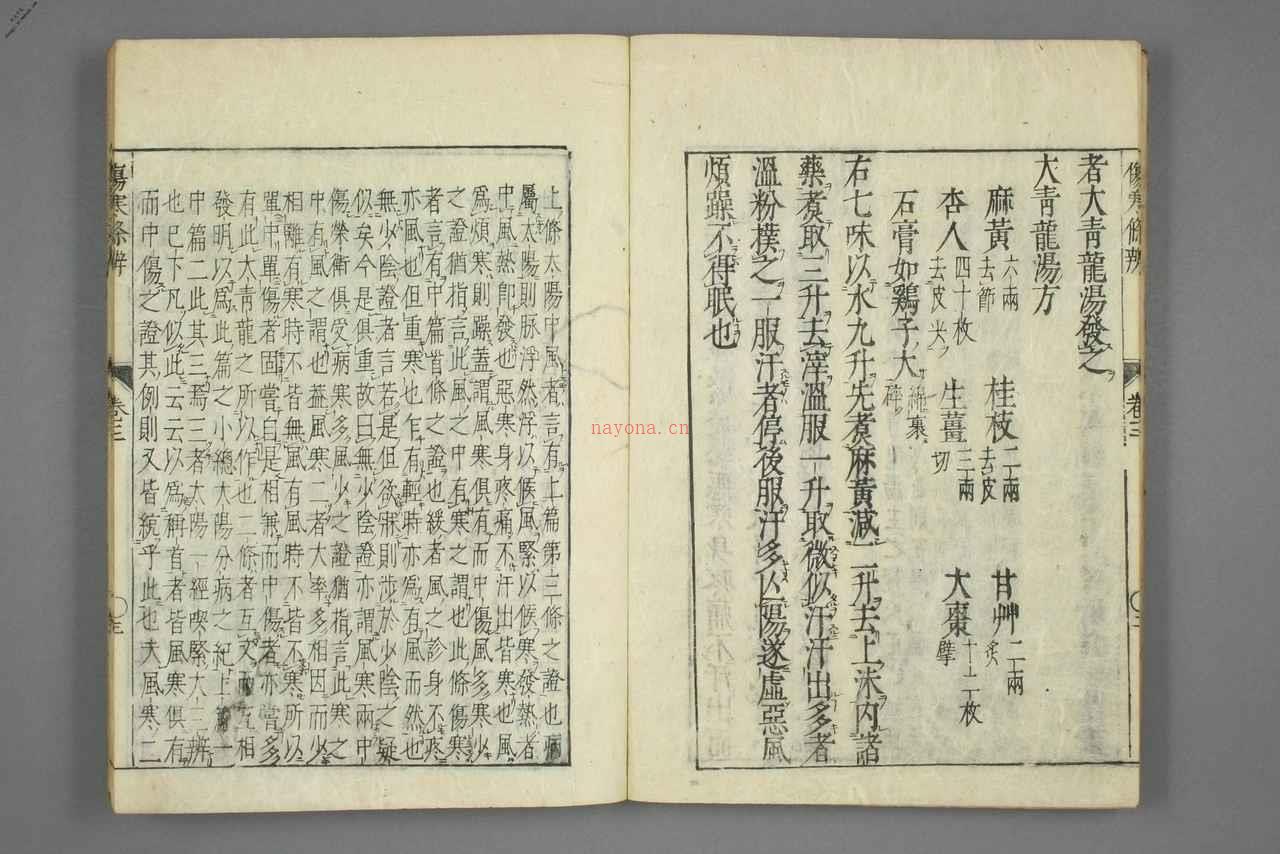 傷寒條辨
卷三
者大青龍湯發之
大青龍湯方
麻黃六兩去節 桂枝二兩去皮 甘艸二兩炙
杏人四十枚去皮尖 生薑三兩切 大棗十二枚擘
石膏如鷄子大綿裹碎
右七味以水九升先煑麻黃減二升去上沫内諸
藥煑取三升去滓溫服一升取微似汗汗出多者
溫粉撲之一服汗者停後服汗多亾陽遂虛惡風
煩躁不得眠也
上條太陽中風者言有上篇第三條之證也病
屬太陽則脉浮然浮以候風緊以候寒發熱者
中風熱卽發也惡寒身疼痛不汗出皆寒也風
爲煩寒則躁蓋謂風寒俱有而中傷風多寒少
之證猶指言此風之中有寒之謂也此條傷寒
者言有中篇首條之證也緩者風之診身不疼
亦風也但重寒也乍有輕時亦爲有風而然也
無少陰證者言若是但欲寐則涉於少陰之疑
似矣今是俱重故曰無少陰證亦謂風寒兩中
傷榮衛俱受病寒多風少之證猶指言此寒之
中有風之謂也蓋風寒二者大率多相因而少
相離有寒時不皆無風有風時不皆不寒所以
單中單傷者固嘗自是相兼而中傷者亦嘗多
有此大青龍之所以作也二條者互文而互相
發明以爲此篇之小總太陽分病之紀上一
中篇二此其三焉三者太陽一經喫緊大三辨
也已下凡似此云云以爲稱首者皆風寒俱有
而中傷之證其例則又皆統乎此也夫風寒二
傷寒條辨
卷三
nayona.cn